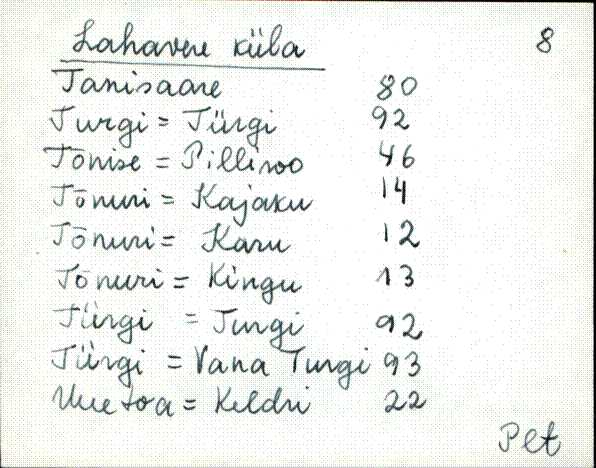 Lahavere küla 8
Tanisaare 80
Turgi = Türgi 92
Tōnise = Pilliroo 46
Tōnuri = Kajaku 14
Tōnuri = Karu 12
Tōnuri = Kingu 13
Türgi = Turgi 92
Türgi = Vana Turgi 93
Uuetoa = Keldri 22
Plt